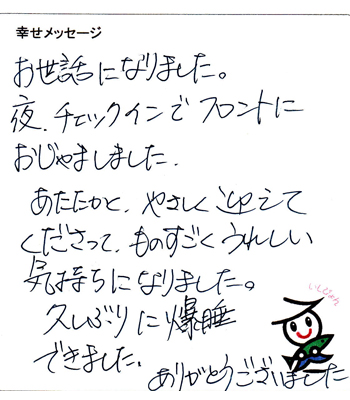 幸せメッセージ
お世話になりました。
夜、チェックインでフロントに
おじゃましました.
あたたかく、やさしく迎えて
くださって、ものすごくうれしい
気持ちになりました。
久しぶりに爆睡
できました.
ありがとうございました